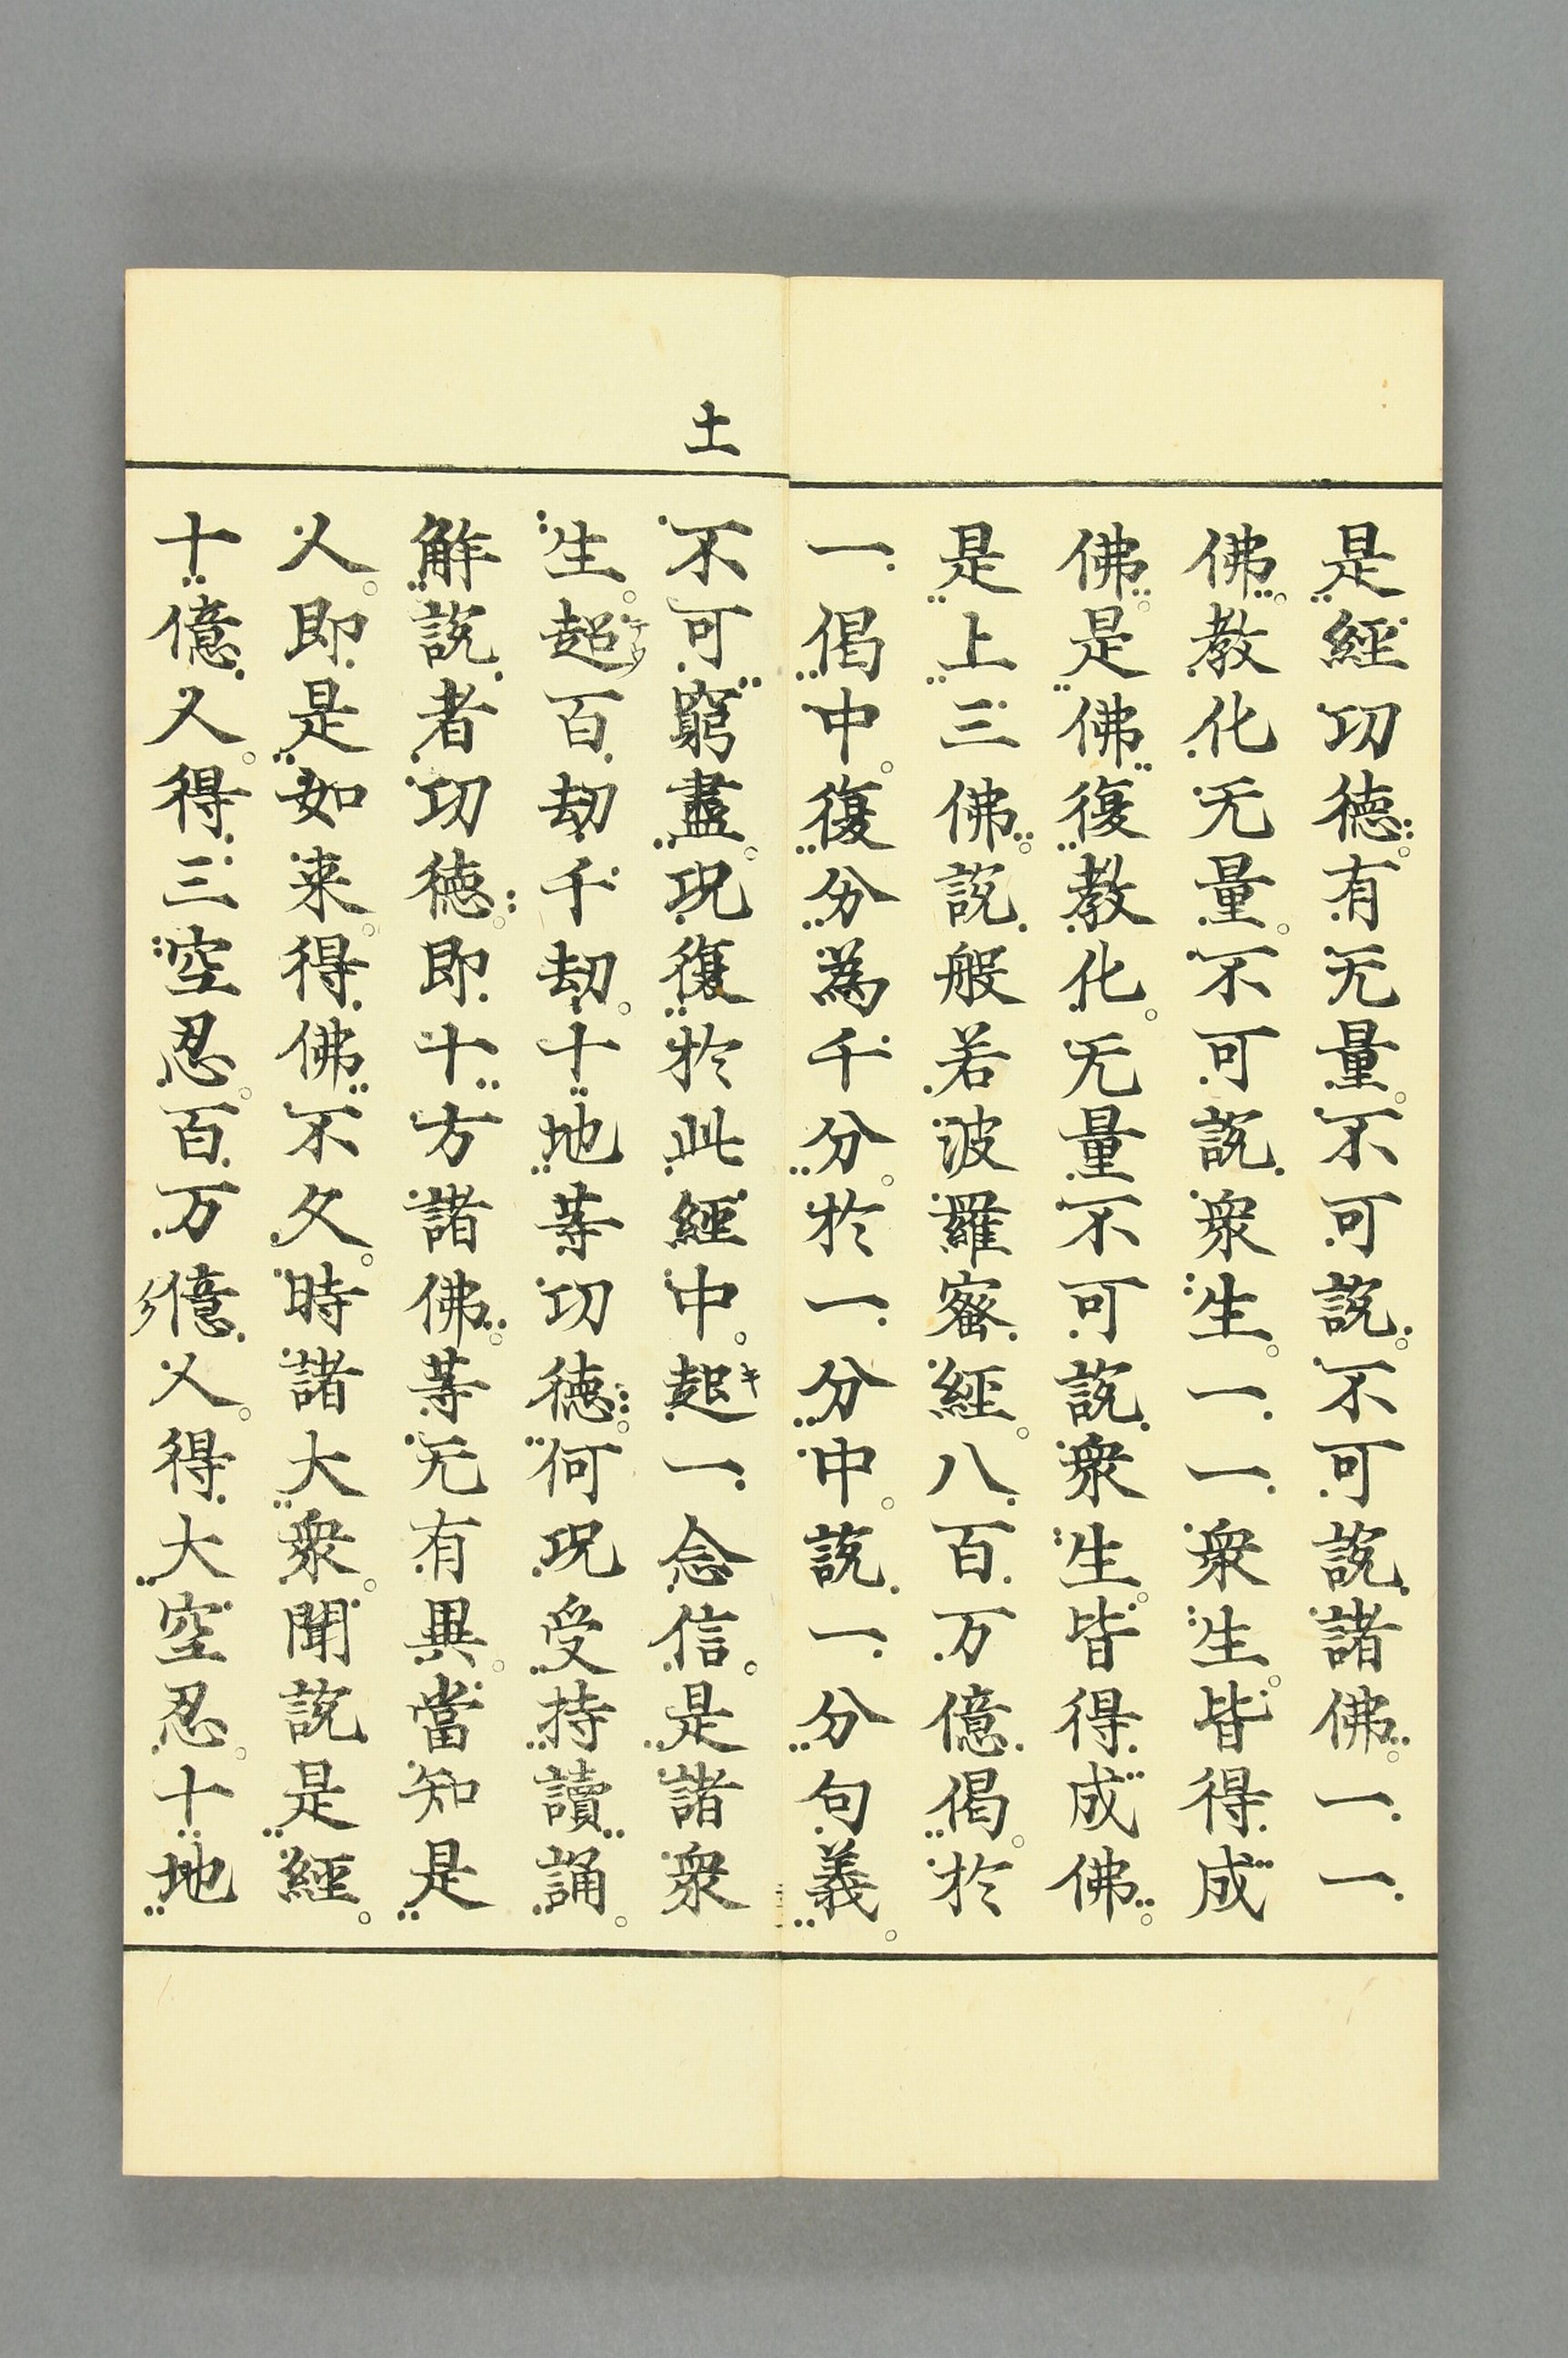 是經功徳有无量不可説不可説諸佛一一
佛教化无量不可説衆生一一衆生皆得成
佛是佛復教化无量不可説衆生皆得成佛
是上三佛説般若波羅蜜經八百万億偈於
一偈中復分為千分於一分中説一分句義
土
不可窮盡况復於此經中起一念信是諸衆
生超百劫千劫十地等功徳何况受持讀誦
解説者功徳即十方諸佛等无有異當知是
人即是如来得佛不久時諸大衆聞説是經
十億人得三空忍百万億人得大空忍十地